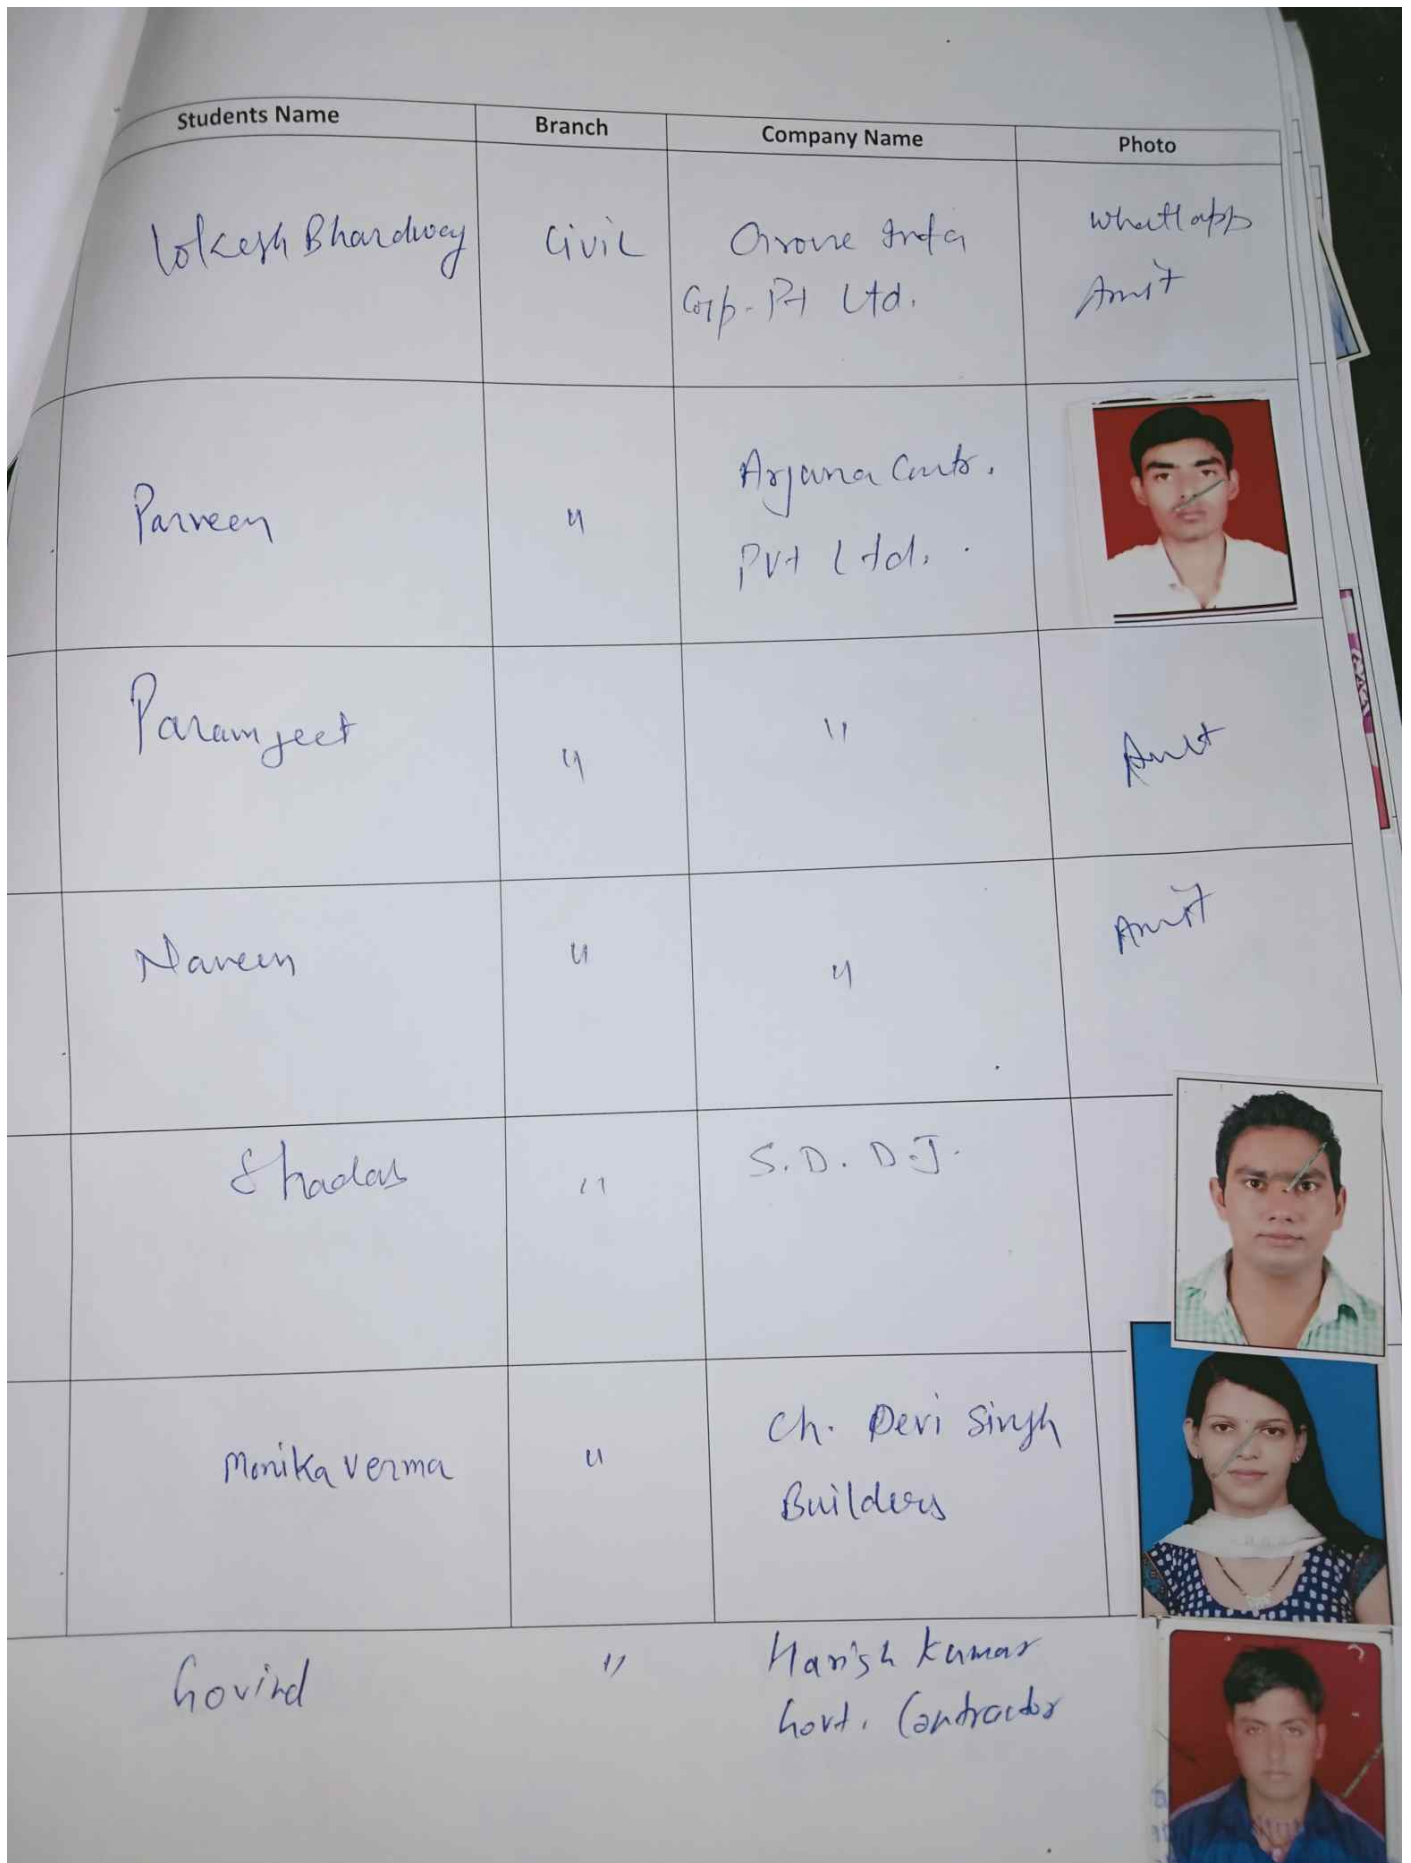 Students Name Branch Company Name Photo
Lokesh Bhardwaj Civil Infra whatsapp
Corp. Pvt Ltd. Amit
Parveen " Arjuna Contr.
Pvt Ltd.
Paramjeet " " Amit
Naveen " " Amit
" S.D. D.J.
Monika Verma " Ch. Devi Singh
Builders
Govind " Harish Kumar
Govt. Contractor